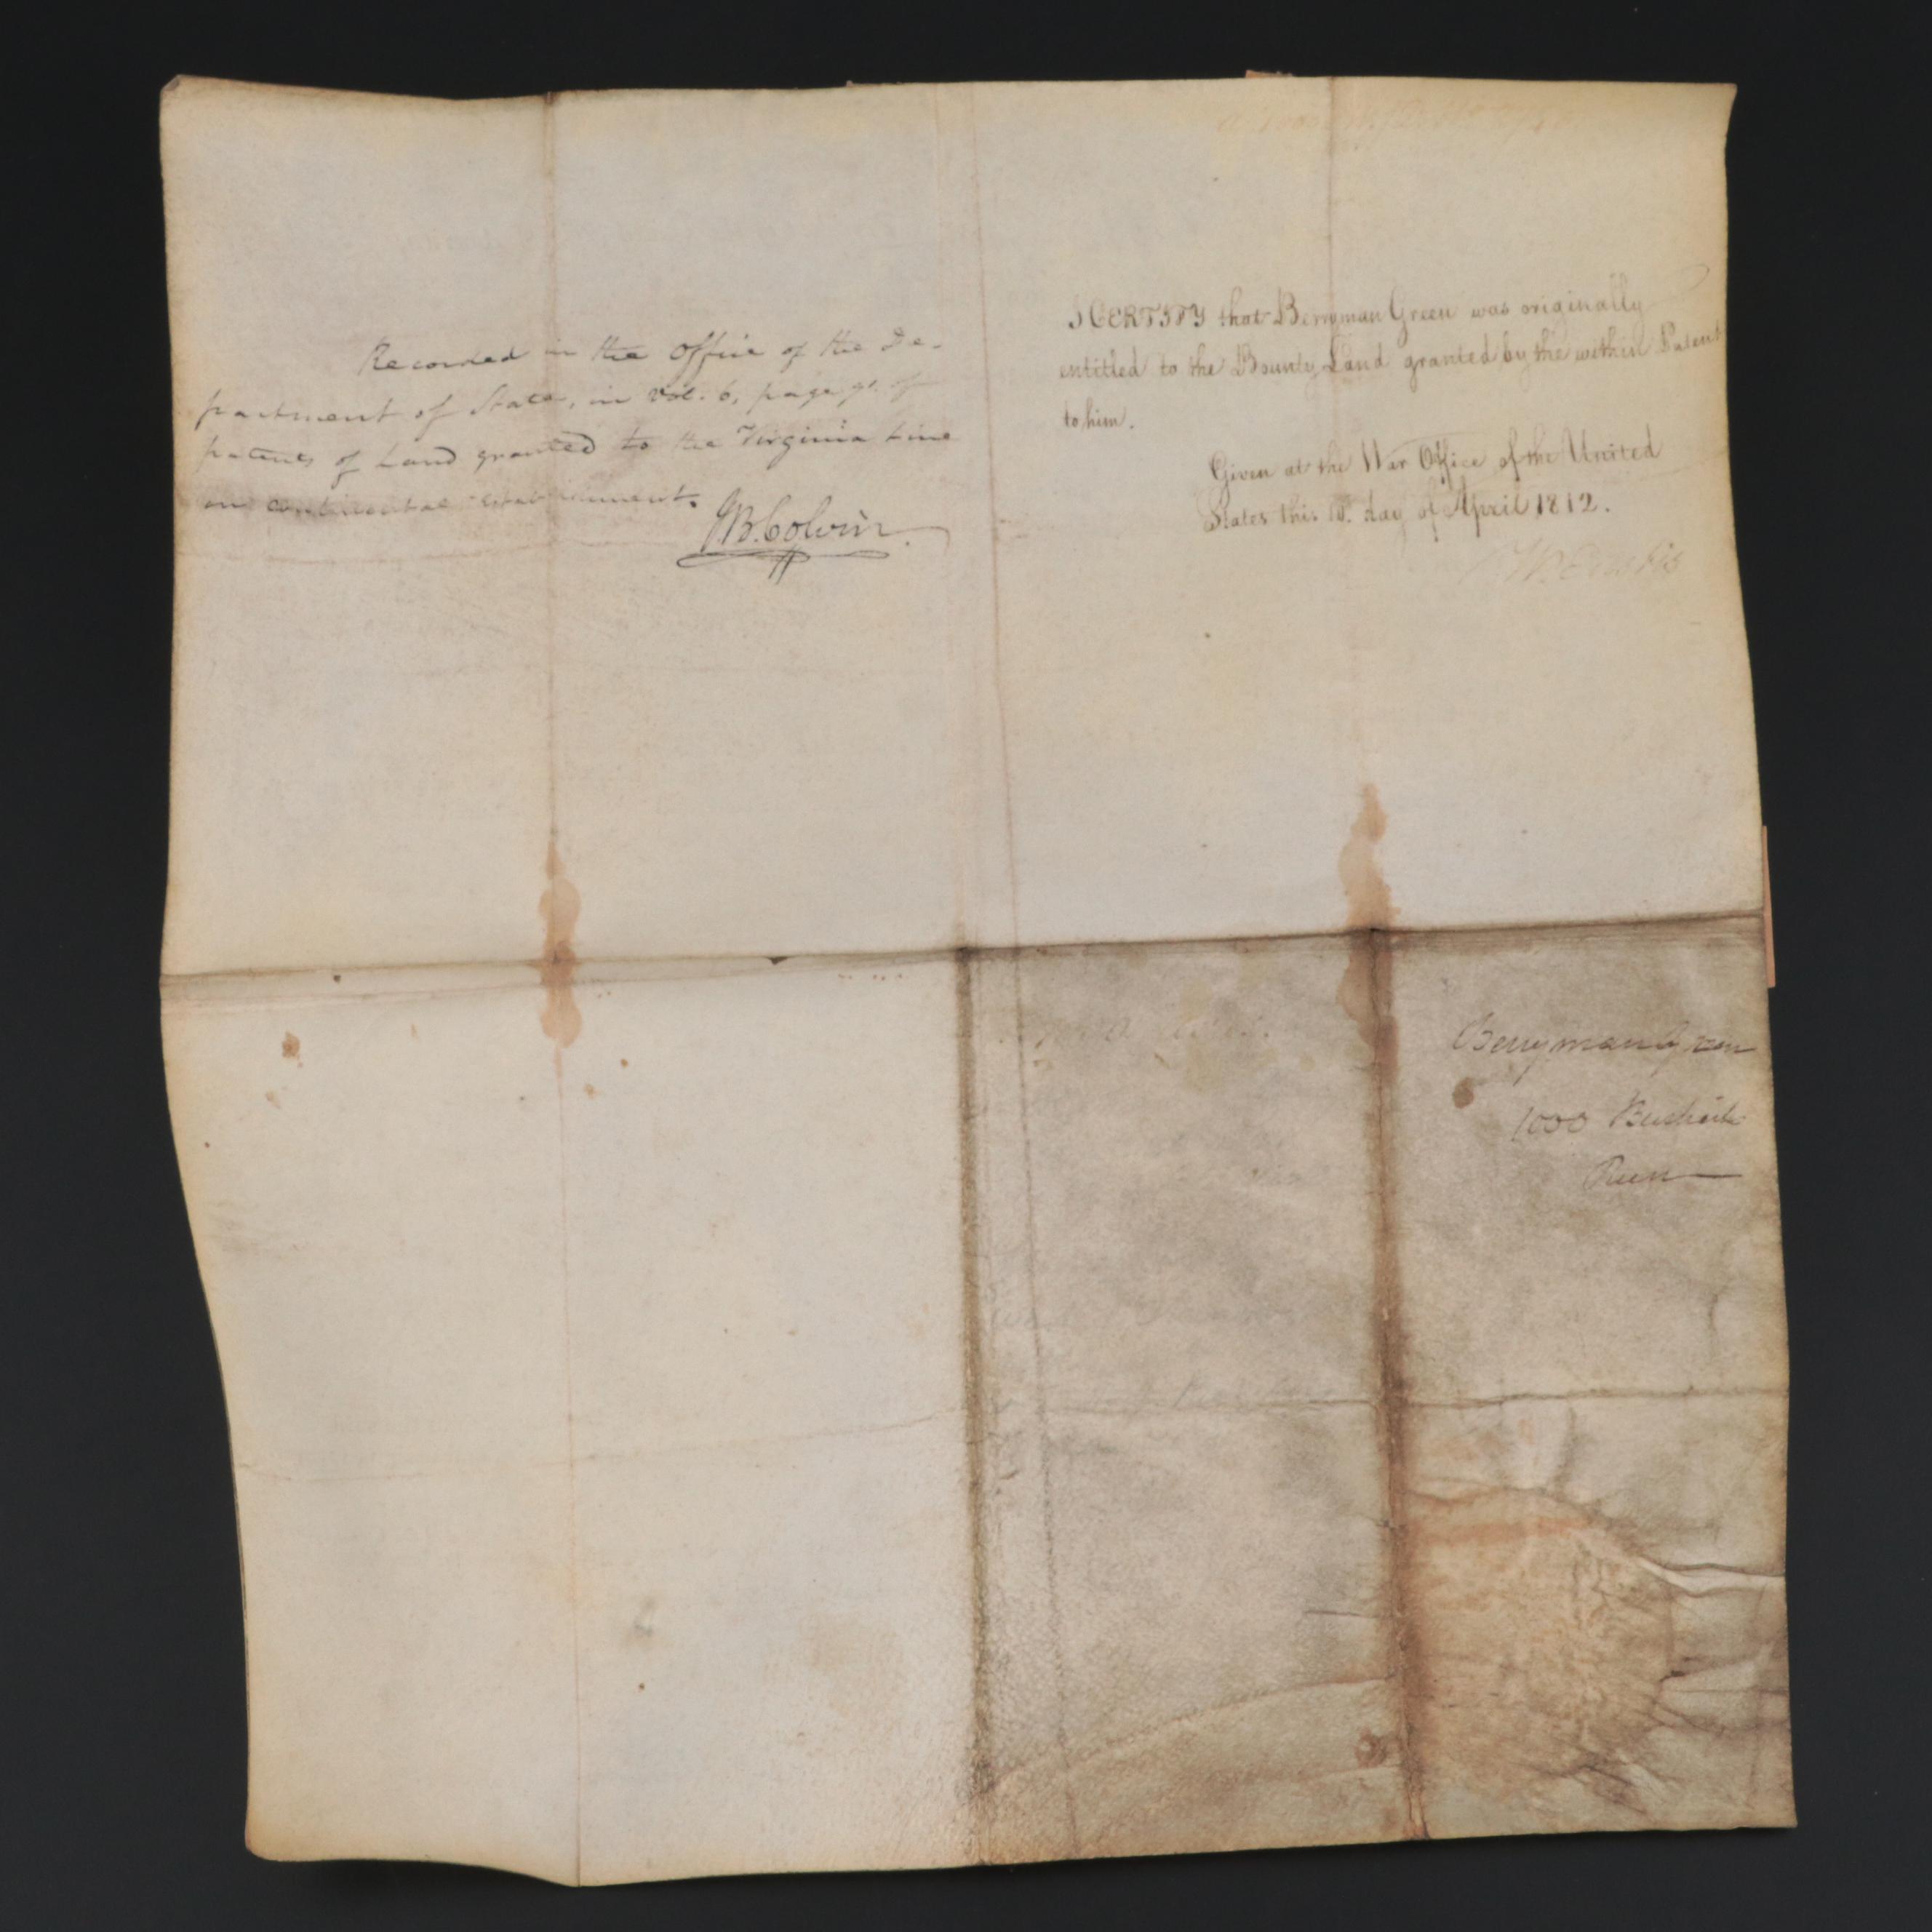 Recorded in the Office of the De-
partment of State, in Vol. 6, page 91. of
patents of Land granted to the Virginia Line
on continental establishment.
J.B. Colvin.
I CERTIFY that Berryman Green was originally
entitled to the Bounty Land granted by the within Patent
to him.
Given at the War Office of the United
States this 10th. day of April 1812.
W. Eustis
Berryman Green
1000
Run